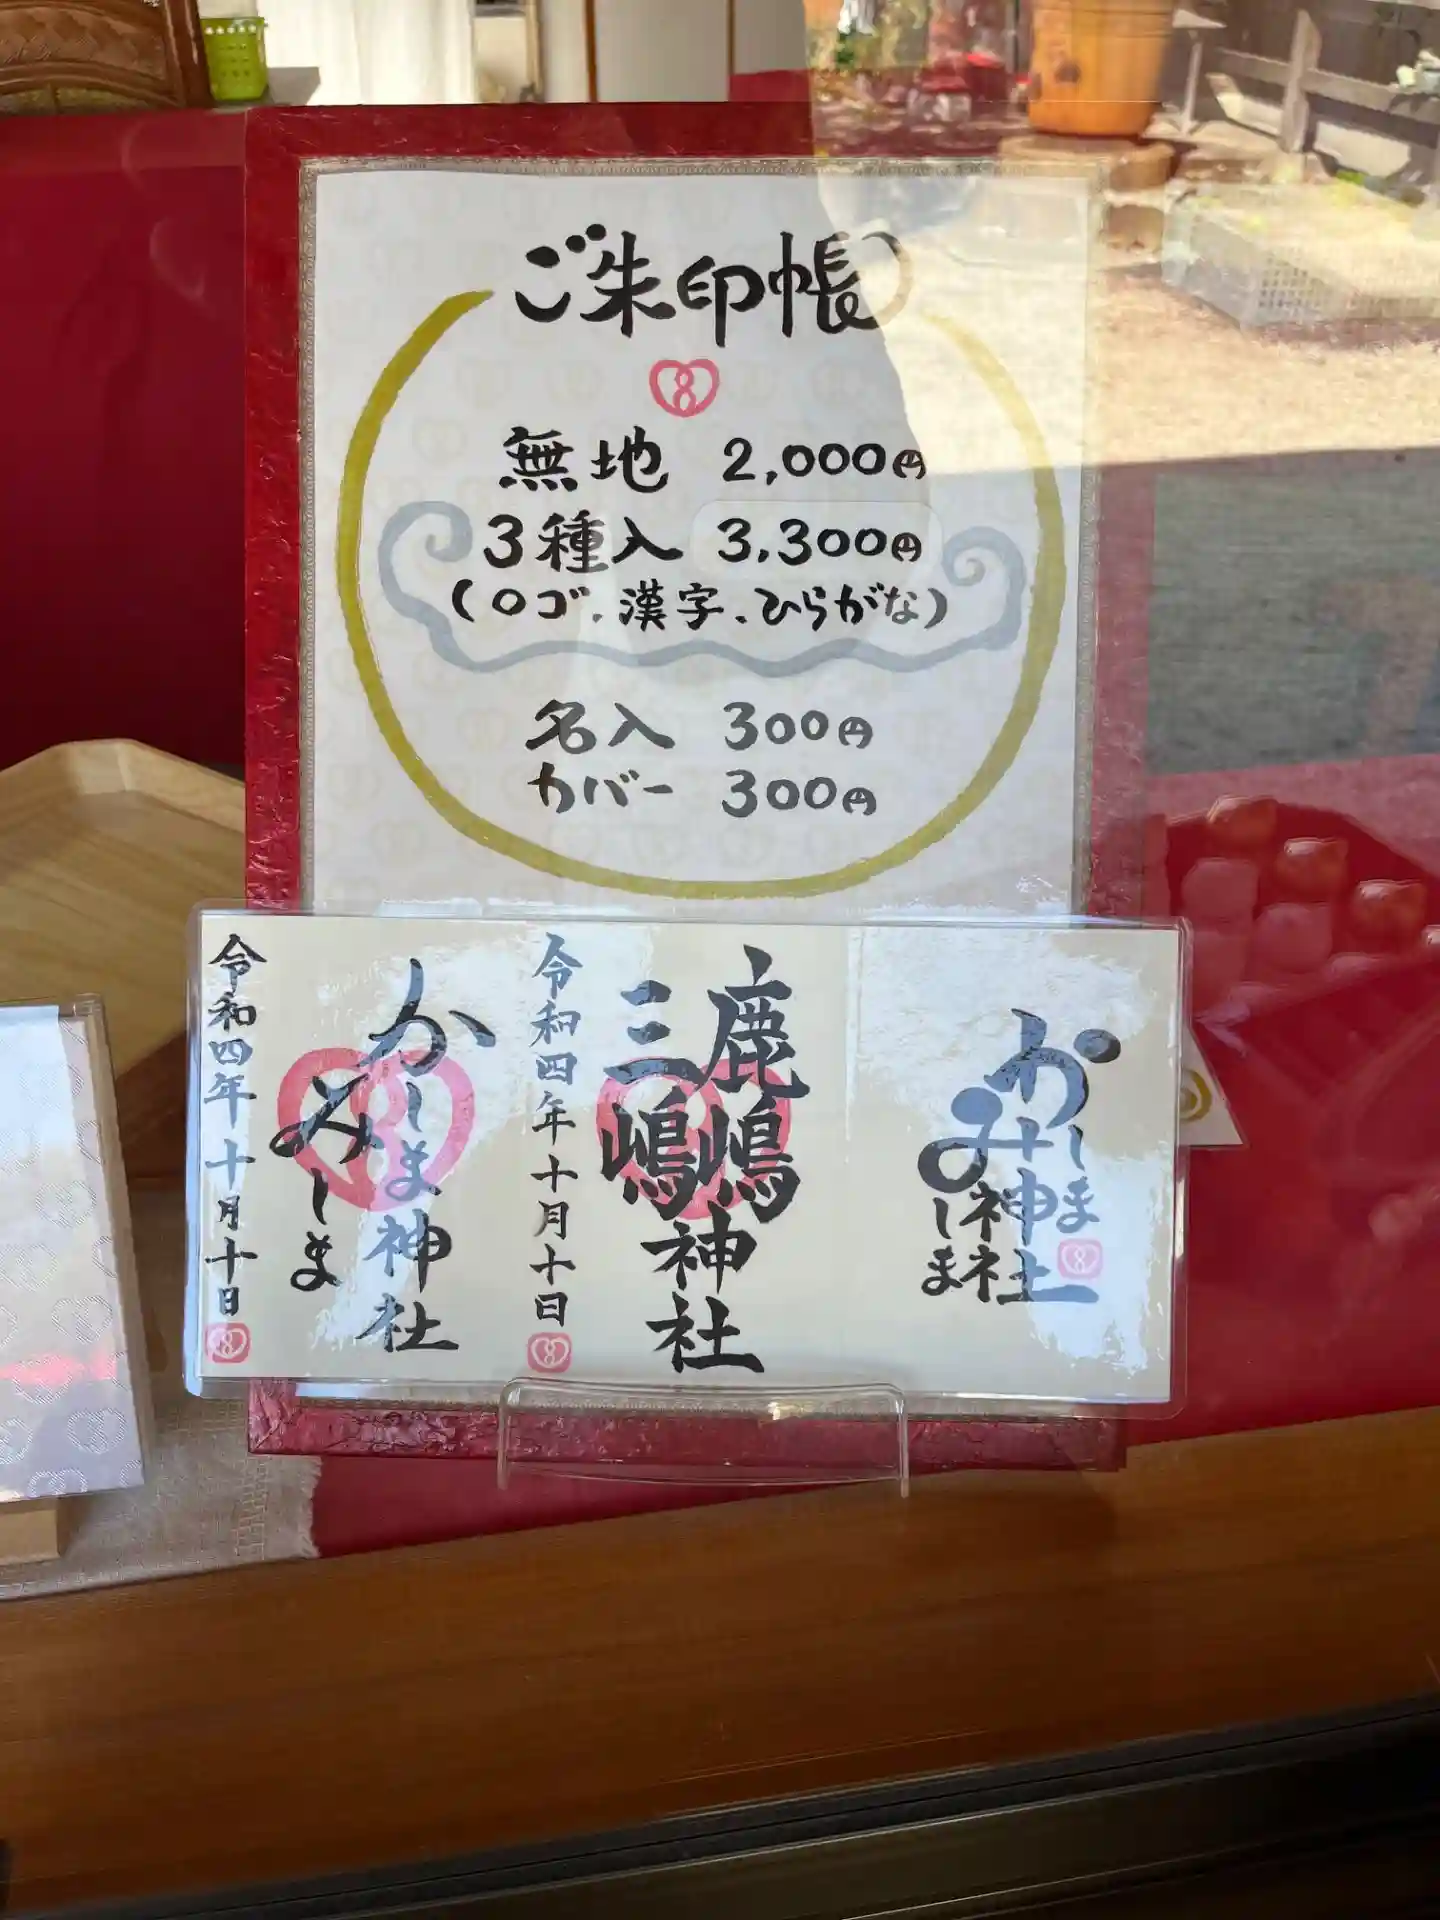 ご朱印帳
無地 2,000円
3種入 3,300円
(ロゴ、漢字、ひらがな)
名入 300円
カバー 300円
かしま神社
みしま
鹿嶋神社
三嶋
令和四年十月十日
かしま神社
みしま
令和四年十月十日